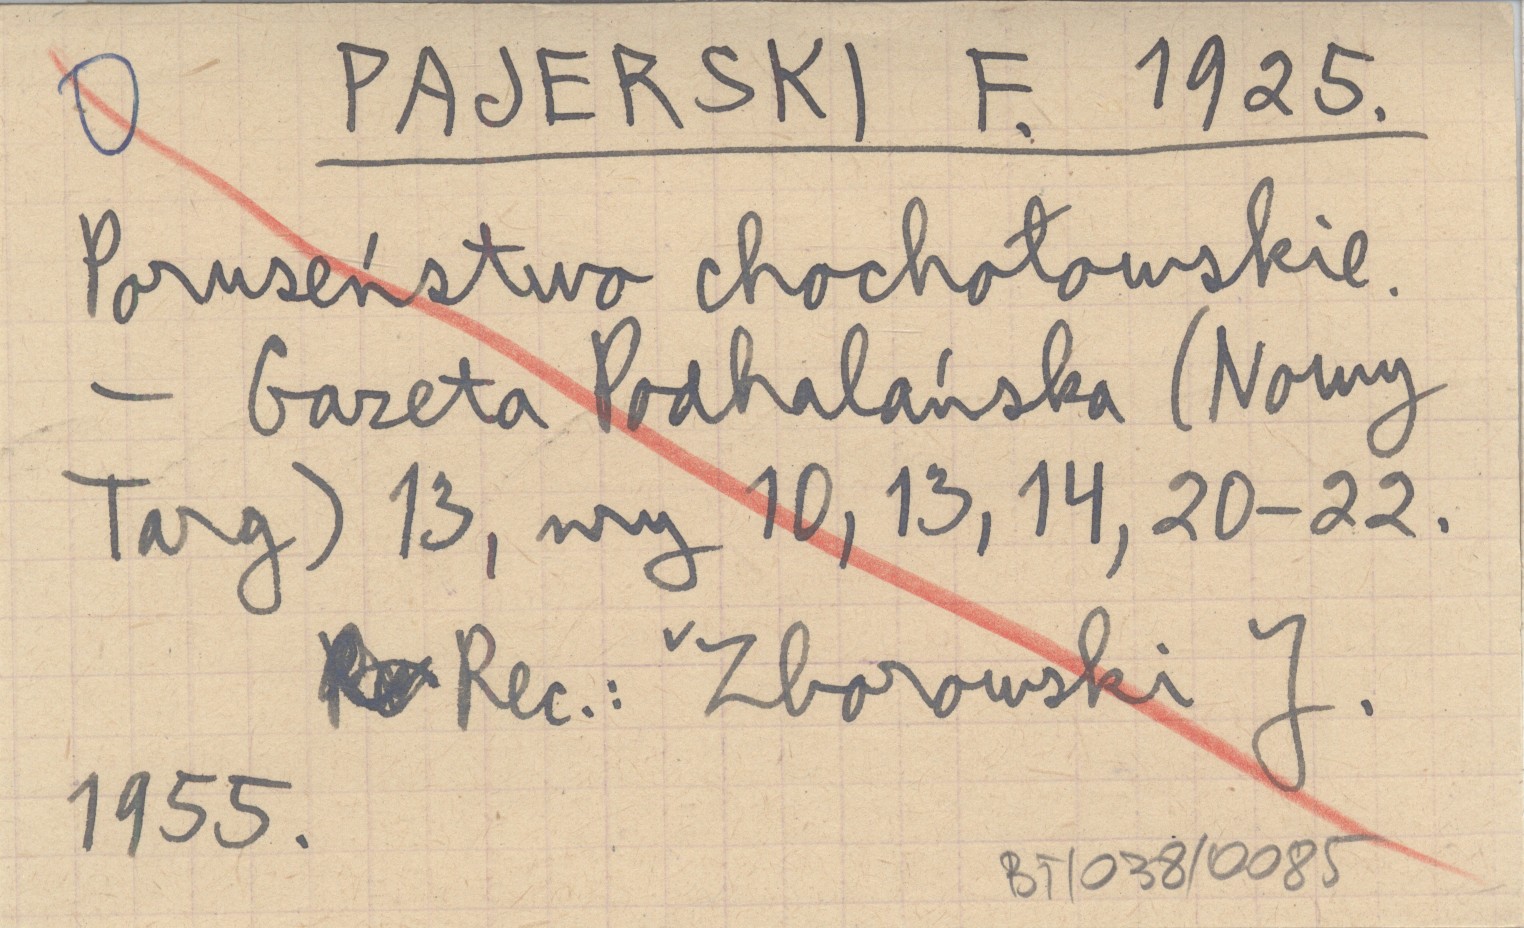 O PAJERSKI F. 1925.
Poruseństwo chochołowskie.
– Gazeta Podhalańska (Nowy
Targ) 13, nry 10, 13, 14, 20–22.
Rec.: Zborowski J.
1955.
BT/038/0085